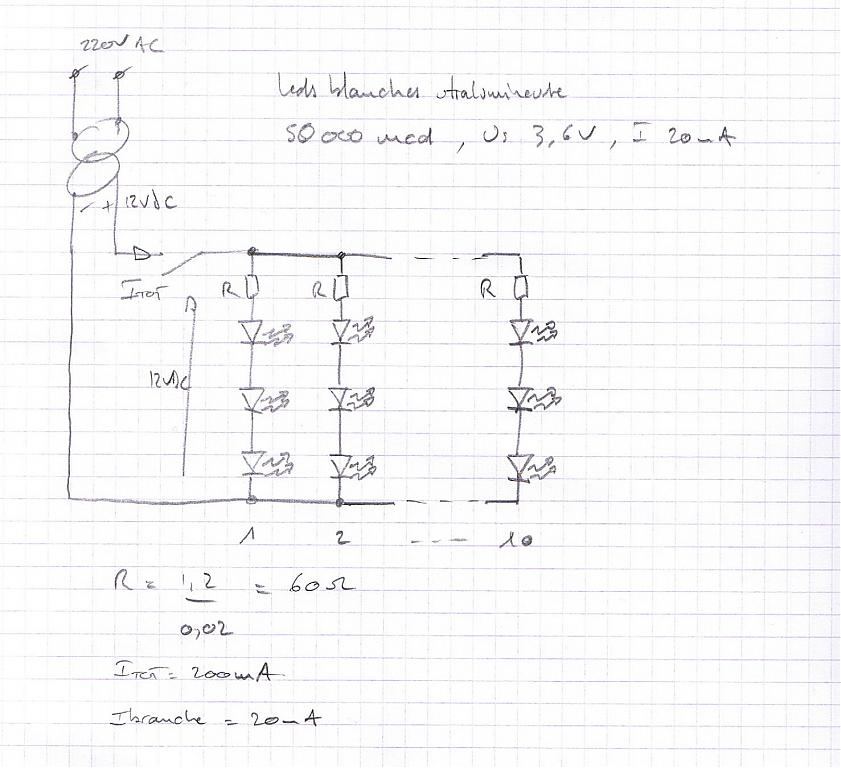 220V AC
Leds blanches ultralumineuse
50 000 mcd , U: 3,6V , I 20mA
- + 12VDC
ITOT
R R R
12VDC
1 2 --- 10
R = 1,2 = 60Ω
0,02
ITOT = 200mA
Ibranche = 20mA